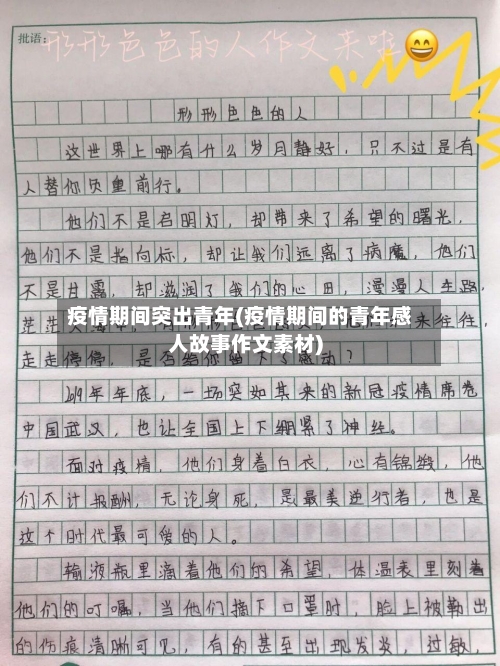 批语:
形形色色的人作文来啦
形形色色的人
这世界上哪有什么岁月静好,只不过是有
人替你负重前行。
他们不是启明灯,却带来了希望的曙光,
他们不是指向标,却让我们远离了病魔,他们
不是甘露,却滋润了我们的心田,漫漫人生路,
疫情期间突出青年(疫情期间的青年感
人故事作文素材)
茫茫人
来往往,
走走停停,是否给你留下了感动?
2019年年底,一场突如其来的新冠疫情席卷
中国武汉,也让全国上下绷紧了神经。
面对疫情,他们身着白衣,心有锦缎,他
们不计报酬,无论身死,是最美逆行者,也是
这个时代最可爱的人。
输液瓶里滴着他们的希望,体温表里刻着
他们的叮嘱,当他们摘下口罩时,脸上被勒出
的伤痕清晰可见,有的甚至出现发炎,过敏,